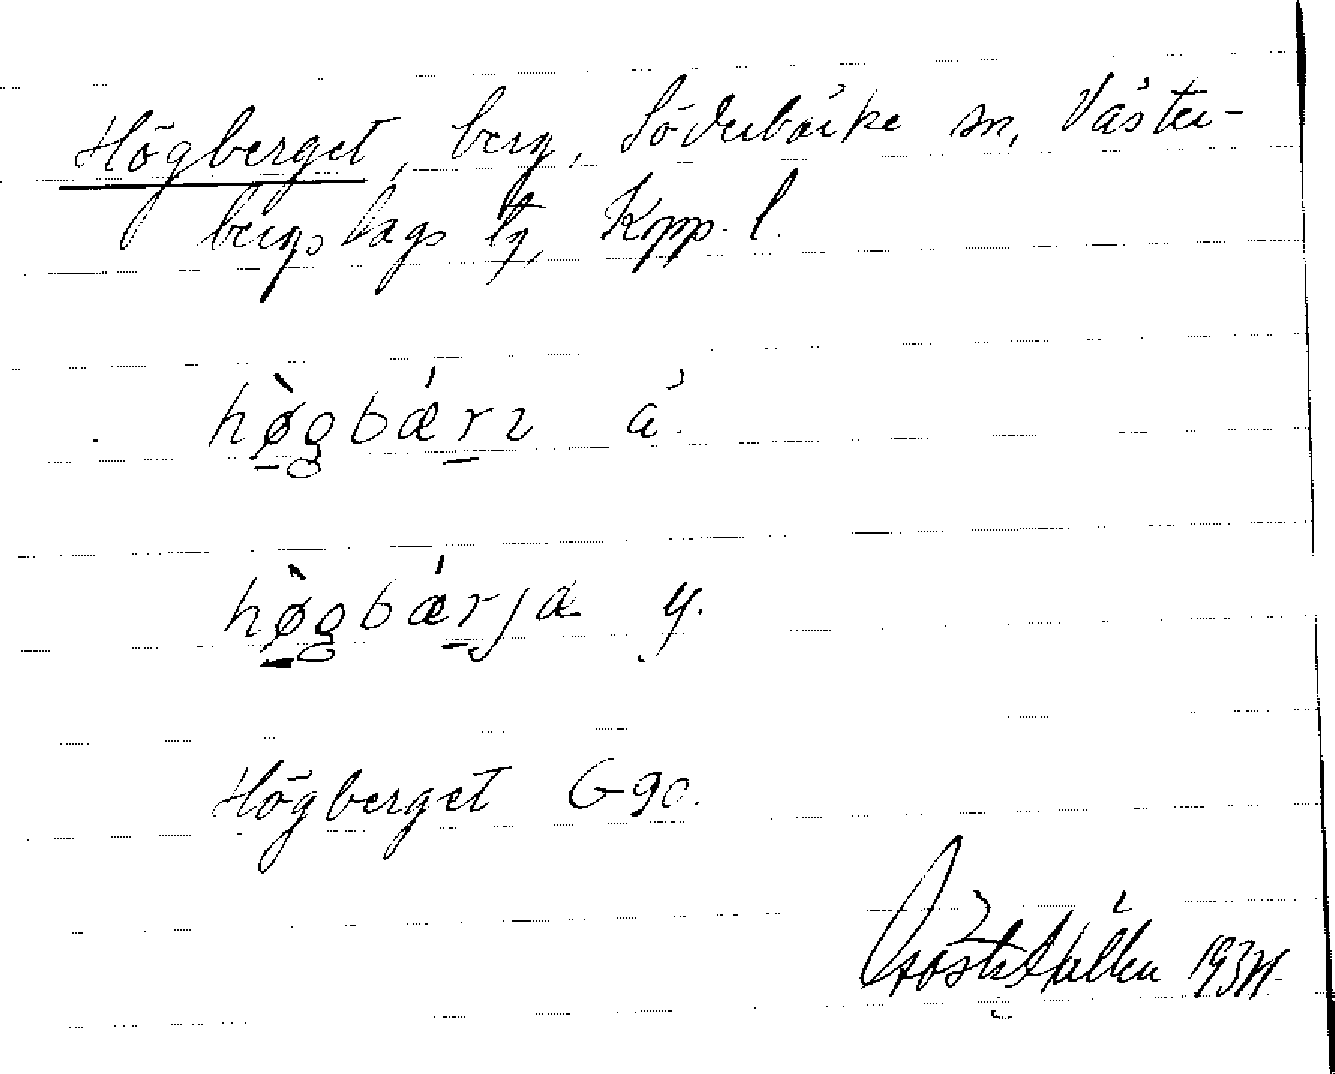 Högberget, berg, Söderbärke sn, Väster-
bergslags tg, Kpp. l.
hø̀gbǽrɪ ä.
hø̀gbǽrja y.
Högberget G 90.
1934